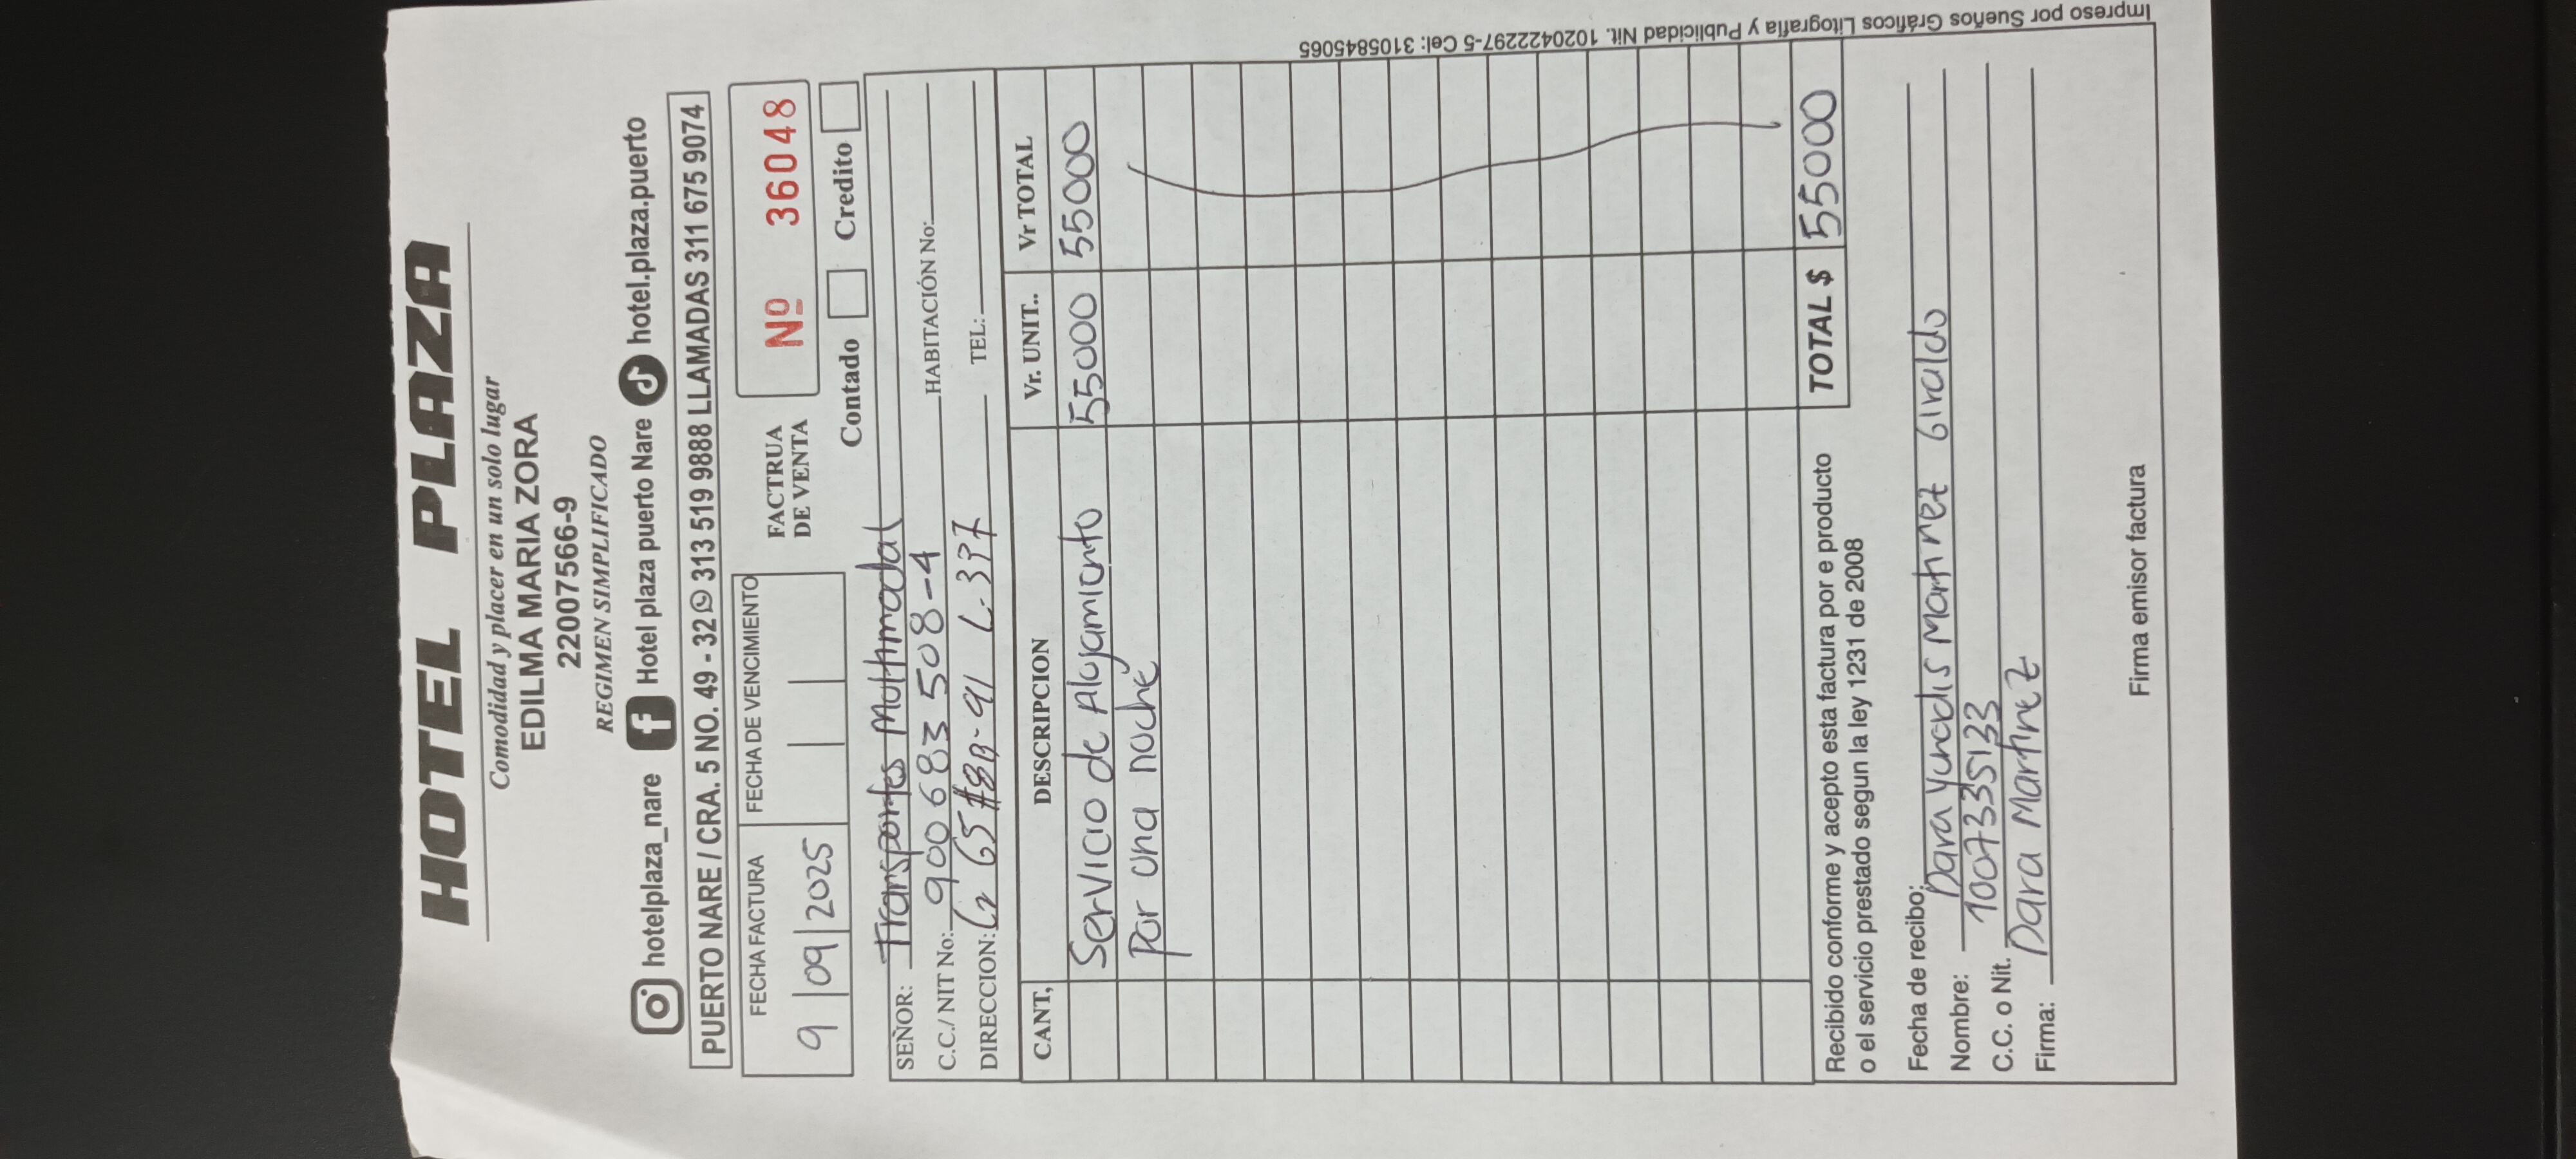 HOTEL PLAZA
Comodidad y placer en un solo lugar
EDILMA MARIA ZORA
22007566-9
REGIMEN SIMPLIFICADO
hotelplaza_nare Hotel plaza puerto Nare hotel.plaza.puerto
PUERTO NARE / CRA. 5 NO. 49 - 32 313 519 9888 LLAMADAS 311 675 9074
FECHA FACTURA FECHA DE VENCIMIENTO FACTRUA DE VENTA Nº 36048
9 09 2025
Contado Credito
SEÑOR: Transportes Multimodal
C.C./ NIT No: 900683508-4 HABITACIÓN No:
DIRECCION: Cr 65 #8B-91 L-337 TEL:
CANT, DESCRIPCION Vr. UNIT.. Vr TOTAL
Servicio de Alojamiento 55000 55000
por una noche
TOTAL $ 55000
Recibido conforme y acepto esta factura por e producto
o el servicio prestado segun la ley 1231 de 2008
Fecha de recibo:
Nombre: Dara Yuradis Martinez Giraldo
C.C. o Nit. 1007335133
Firma: Dara Martinez
Firma emisor factura
Impreso por Sueños Gráficos Litografía y Publicidad Nit. 1020422297-5 Cel: 3105845065